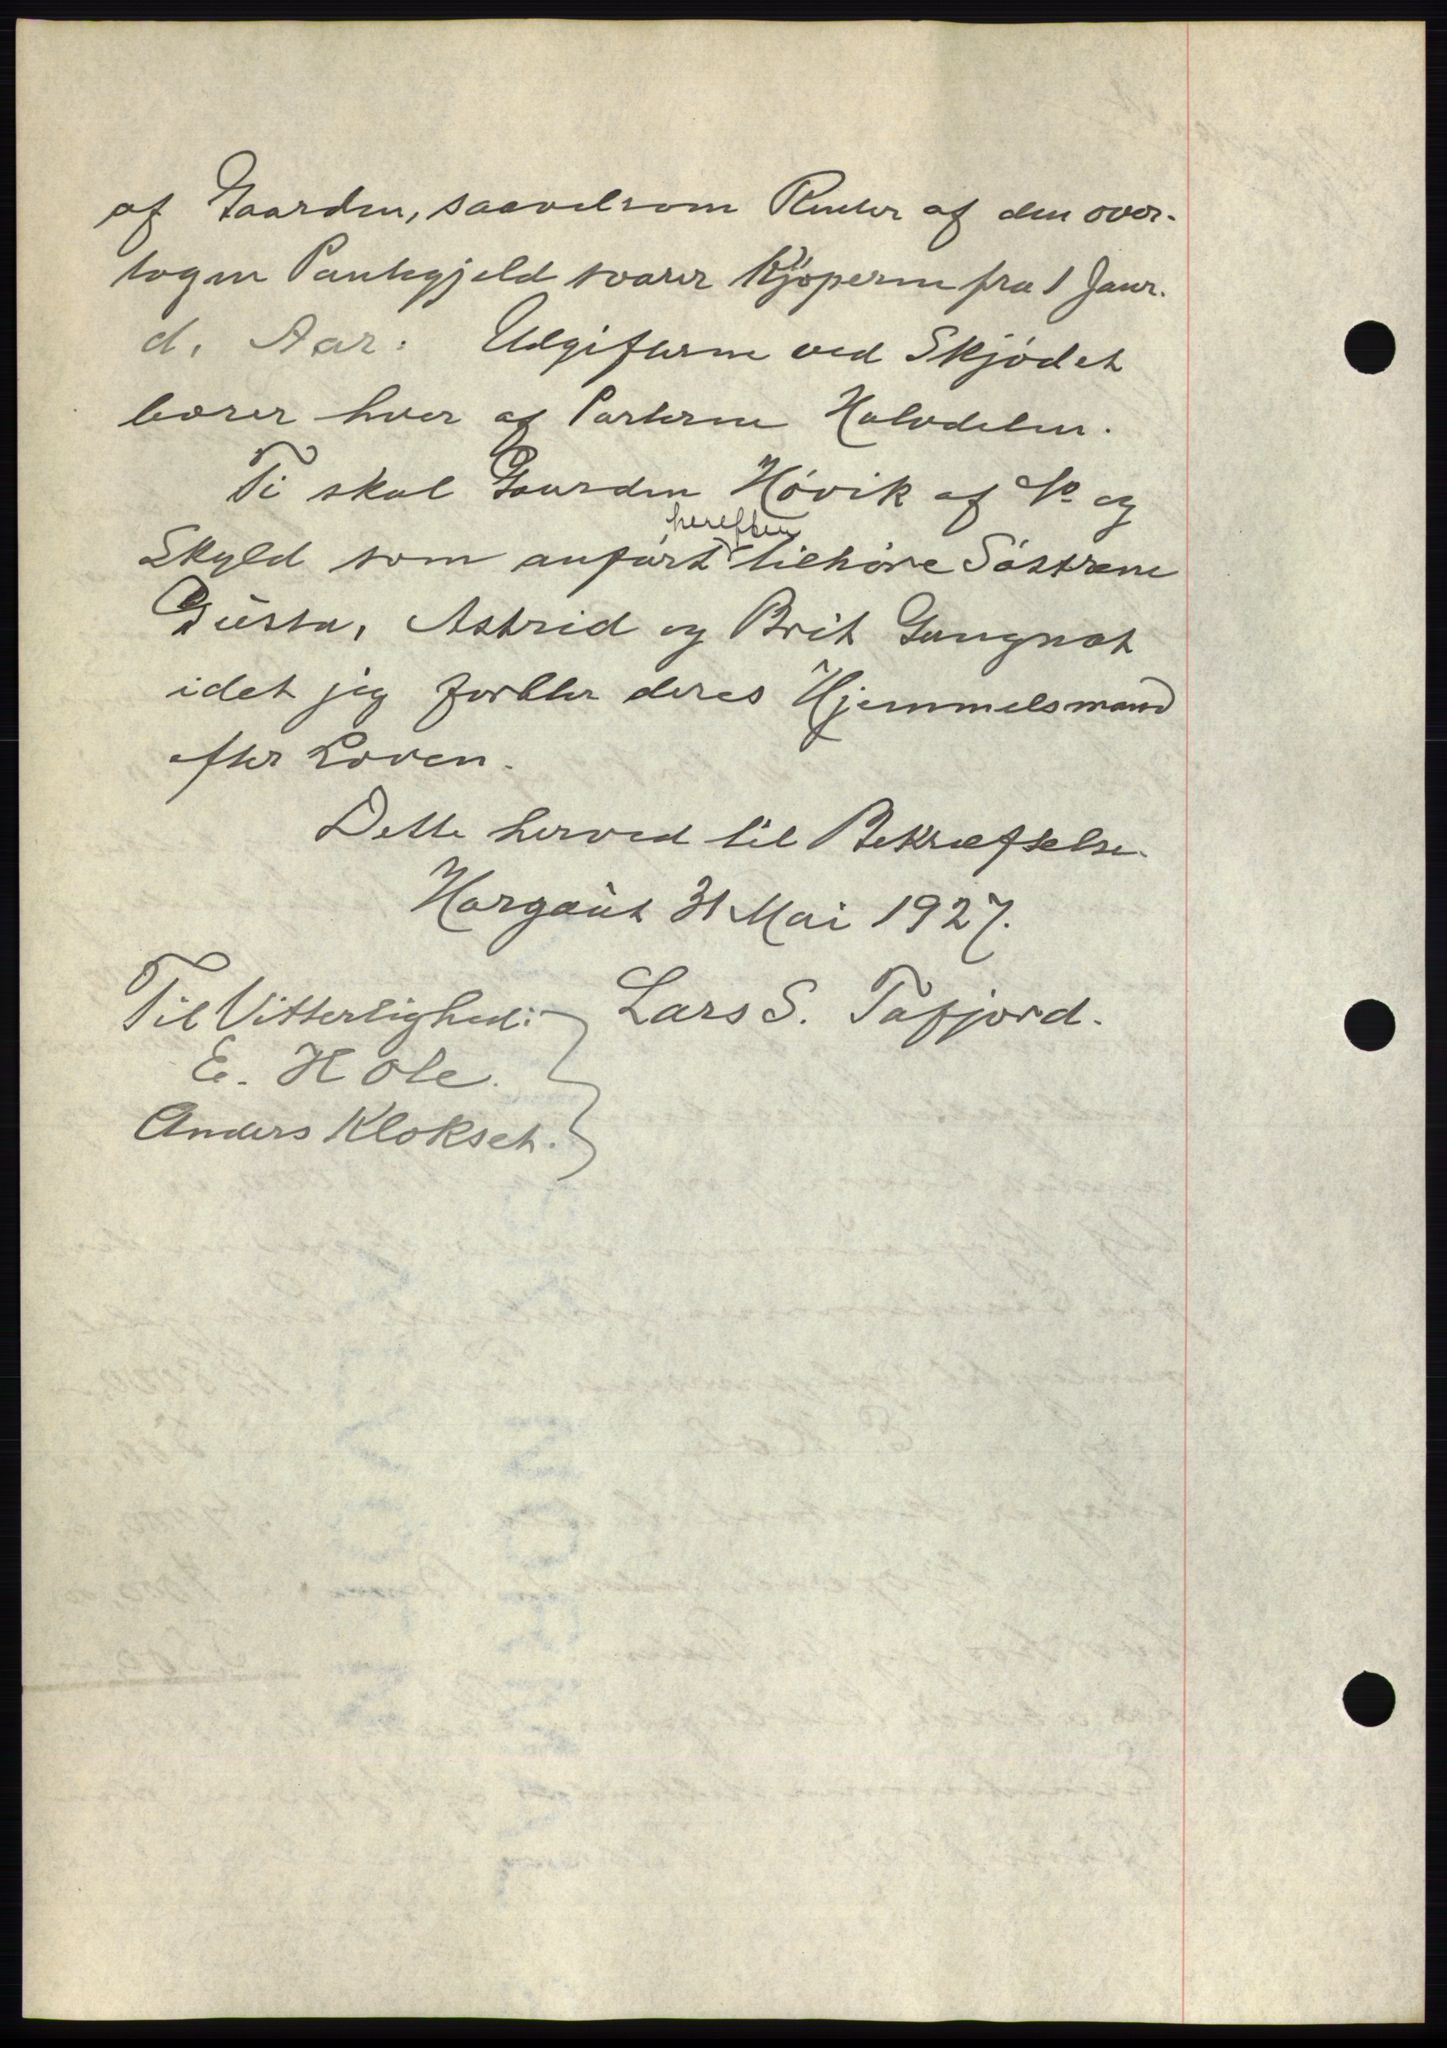 af Gaarden, saavelsom Renter af den over-
tagne Pantegjeld svarer Kjøperne fra 1 Janr.
d. Aar. Udgifterne ved Skjødet
bærer hver af Parterne Halvdelen.
Ti skal Gaarden Høvik af No og
herefter
Skyld som anført tilhøre Søstrene
Gusta, Astrid og Brit Gangnat
idet jeg forblir deres Hjemmelsmand
efter Loven.
Dette herved til Bekræftelse.
Hargaut 31 Mai 1927.
Til Vitterlighed: Lars S. Tafjord.
E. Hole.
Anders Klokset.